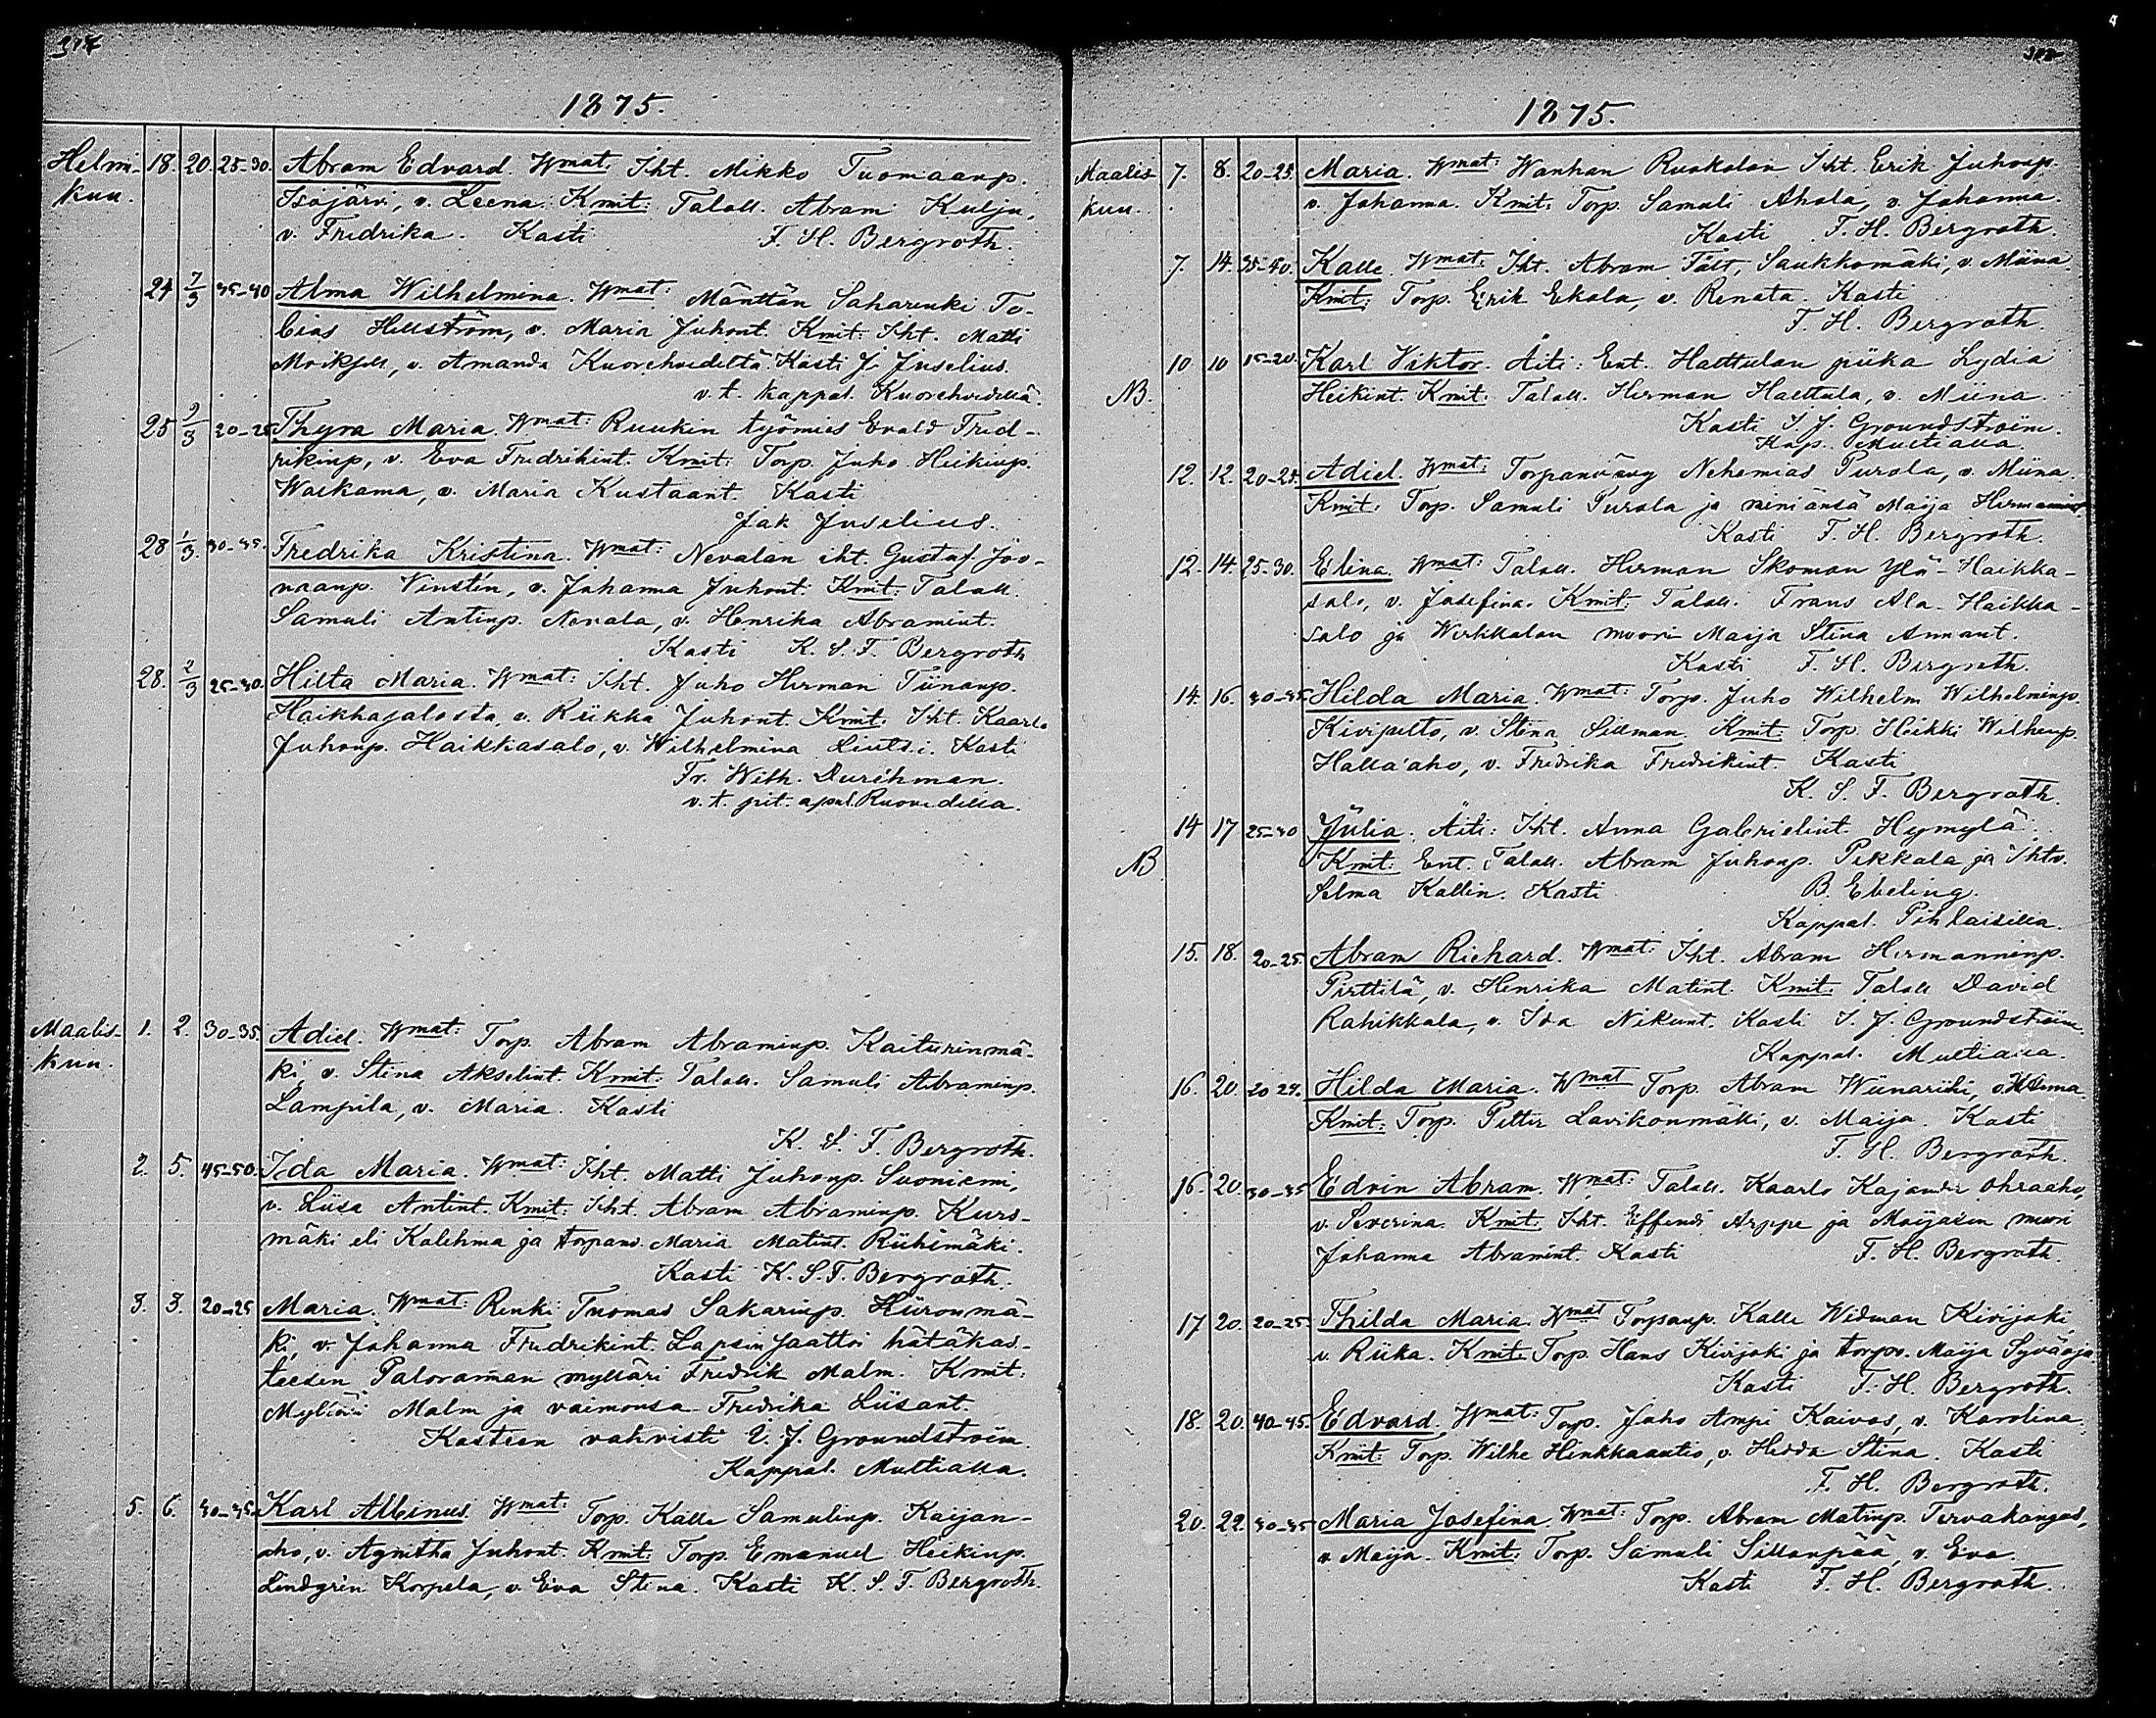 1875.
Helmi- 18. 20. 25-30. Abram Edvard. Wmat: Iht. Mikko Tuomaanp.
kuu. Isojärvi, v. Leena. Kmit: Talall. Abram Kulju,
v. Fredrika. Kasti F. H. Bergroth.
24 7/3 35-40 Alma Wilhelmina. Wmat: Mänttän Saharenki To-
bias Hellström, v. Maria Juhont. Kmit: Iht. Matti
v. Amanda Kuorehvedeltä. Kasti J. Juselius.
v. t. kappal. Kuorehvedellä.
25 9/3 20-25 Thyra Maria. Wmat: Ruukin työmies Evald Fred-
rikinp, v. Eva Fredrikint. Kmit: Torp. Juho Heikinp.
Walkama, v. Maria Kustaant. Kasti
Jak Juselius.
28 1/3. 30-35. Fredrika Kristina. Wmat: Nevalan iht. Gustaf Joo-
naanp. Vinstén, v. Johanna Juhont. Kmit: Talall.
Samuli Antinp. Nevala, v. Henrika Abramint.
Kasti K. S. F. Bergroth
28. 2/3 25-30. Hilta Maria. Wmat: Iht. Juho Herman Tiinanp.
Haikkasalosta, v. Riikka Juhont. Kmit: Iht. Kaarlo
Juhonp. Haikkasalo, v. Wilhelmina Kasti
Fr. Wilh. Durchman.
v. t. pit: apul. Ruovedellä.
Maalis- 1. 2. 30-35. Adiel. Wmat: Torp. Abram Abraminp. Kaiturinmä-
kuu. ki, v. Stina Akselint. Kmit: Talall. Samuli Abraminp.
Lampila, v. Maria. Kasti
K. S. F. Bergroth.
2. 5. 45-50. Ida Maria. Wmat: Iht. Matti Juhonp. Suoniemi,
v. Liisa Antint. Kmit: Iht. Abram Abraminp. Kurs-
mäki eli Kalehma ja torpanv. Maria Matint. Riihimäki.
Kasti K. S. F. Bergroth.
3. 3. 20-25 Maria. Wmat: Renki Tuomas Sakarinp. Hiironmä-
ki, v. Johanna Fredrikint. Lapsen saattoi hätäkas-
teesen Paloraman mylläri Fredrik Malm. Kmit:
Mylläri Malm ja vaimonsa Fredrika Liisant.
Kasteen vahvisti I. J. Groundstroëm.
Kappal. Multialla.
5. 6. 30-35 Karl Albinus. Wmat: Torp. Kalle Samulinp. Kaijan-
aho, v. Agnitha Juhont. Kmit: Torp. Emanuel Heikinp.
Lindgrén Korpela, v. Eva Stina. Kasti K. S. F. Bergroth.
1875.
Maalis 7. 8. 20-25. Maria. Wmat: Wanhan Ruokolan Iht. Erik Juhonp.
kuu. v. Johanna. Kmit: Torp. Samuli Ahola, v. Johanna.
Kasti F. H. Bergroth.
7. 14. 35-40. Kalle. Wmat: Iht. Abram Fält, Saukkomäki, v. Miina.
Kmit: Torp. Erik Ekola, v. Renata. Kasti
F. H. Bergroth.
10. 10 15-20. Karl Viktor. Äiti: Ent. Halttulan piika Lydia
NB. Heikint. Kmit: Talall. Herman Halttula, v. Miina.
Kasti I. J. Groundstroëm.
Kap. Multialla.
12. 12. 20-25. Adiel. Wmat: Torpanvävy Nehemias Purola, v. Miina.
Kmit: Torp. Samuli Purola ja miniänsä Maija
Kasti F. H. Bergroth.
12. 14. 25-30. Elina. Wmat: Talall. Herman Skoman Ylä-Haikka-
salo, v. Josefina. Kmit: Talall. Frans Ala-Haikka-
salo ja Werkkalan muori Maija Stina Annant.
Kasti F. H. Bergroth.
14. 16. 30-35 Hilda Maria. Wmat: Torp. Juho Wilhelm Wilhelminp.
Kivipelto, v. Stina Sillman. Kmit: Torp. Heikki Wilhemp.
Halla'aho, v. Fredrika Fredrikint. Kasti
K. S. F. Bergroth.
14 17 25-30 Julia. Äiti: Iht. Anna Gabrielint. Hymylä.
NB Kmit: Ent. Talall. Abram Juhonp. Pekkala ja Ihtv.
Selma Kallin. Kasti B. Ebeling.
Kappal. Pihlaisilla.
15. 18. 20-25. Abram Richard. Wmat: Iht. Abram Hermanninp.
Pirttilä, v. Henrika Matint. Kmit: Talall David
Rahikkala, v. Ida Nikunt. Kasti I. J. Groundstroëm.
Kappal. Multialla.
16. 20. 20 24. Hilda Maria. Wmat Torp. Abram Wiinarihi, v.
Kmit: Torp. Petter Lavikonmäki, v. Maija. Kasti
F. H. Bergroth.
16. 20. 30-35 Edvin Abram. Wmat: Talall. Kaarlo Kajander Ohraaho,
v. Severina. Kmit: Iht. Effendi Arppe ja Maijasen muori
Johanna Abramint. Kasti F. H. Bergroth.
17 20. 20-25. Thilda Maria. Wmat Torpanp. Kalle Widman Kivijoki,
v. Riika. Kmit: Torp. Hans Kivijoki ja torpv. Maija Syväoja
Kasti F. H. Bergroth.
18. 20. 40-45. Edvard. Wmat: Torp. Juho Ampi Kaivos, v. Karolina.
Kmit: Torp. Wilhe Hinkkaantio, v. Hedda Stina. Kasti
F. H. Bergroth.
20. 22. 30-35 Maria Josefina. Wmat: Torp. Abram Matinp. Tervakangas,
v. Maija. Kmit: Torp. Samuli Sillanpää, v. Eva.
Kasti F. H. Bergroth.